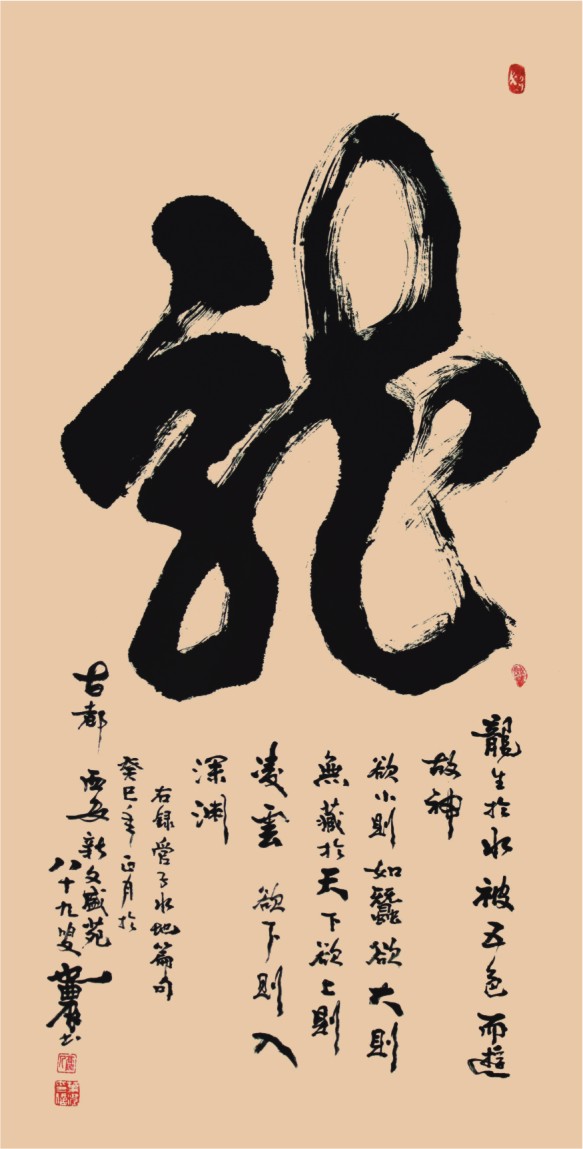 龍
龍生於水被五色而遊
故神
欲小則如蠶欲大則
無藏於天下欲上則
凌雲 欲下則入
深渊
右録管子水地篇句
癸巳年正月於
古都 西安新文盛苑
八十九叟